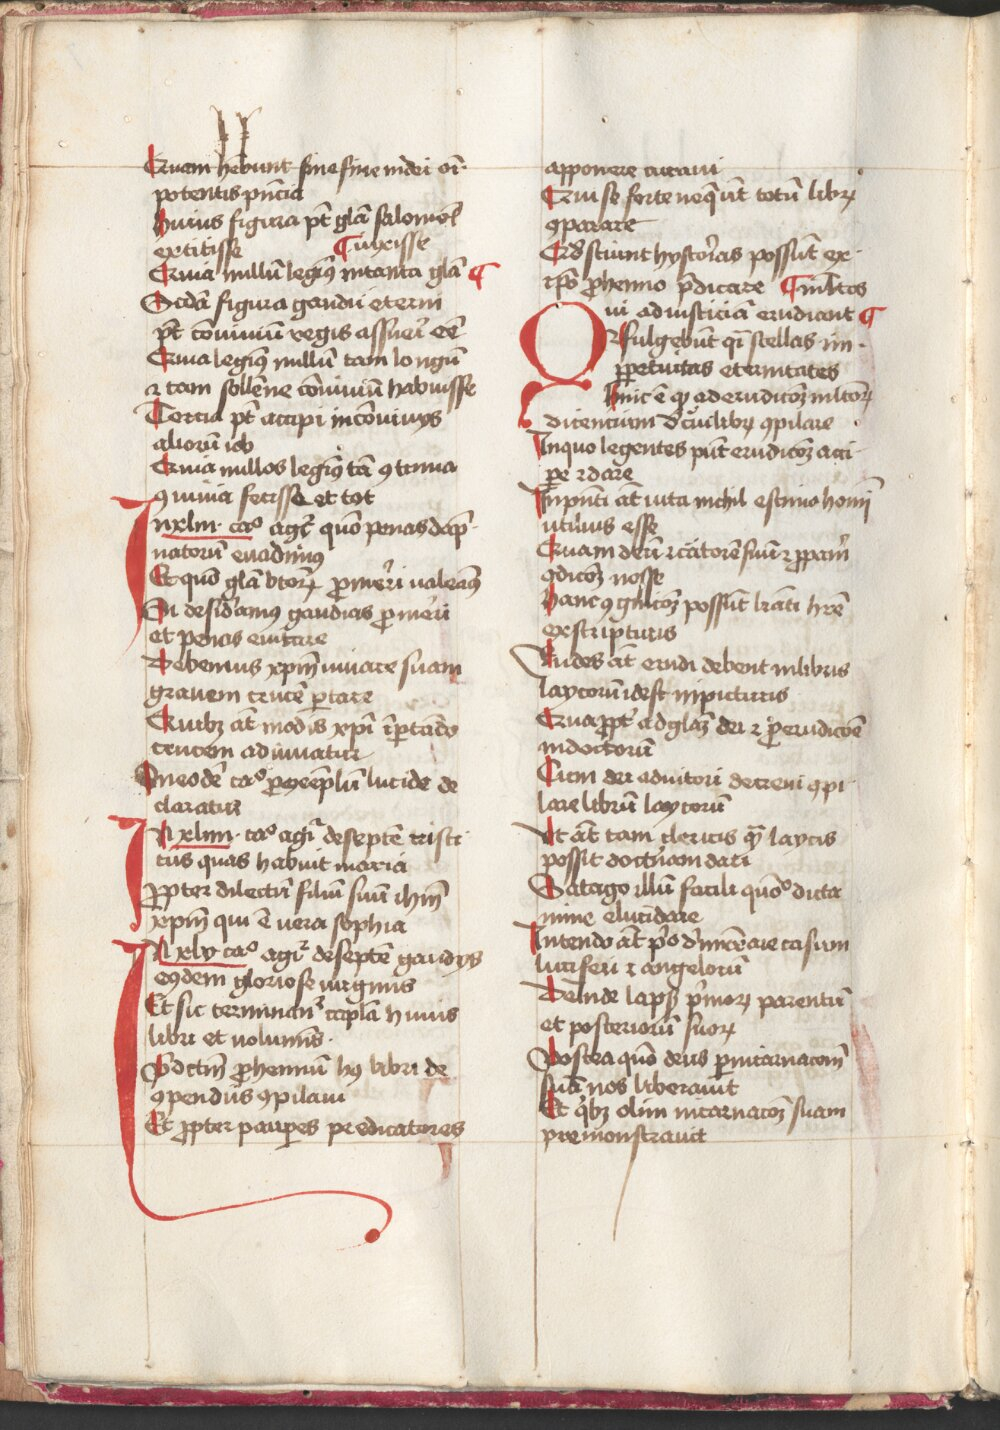 Quam hēbunt sine fine in dei oī
potentis pn̄cia
Huius figura pt̄ glā salomoīs
extitisse ¶ uixisse
Quia nullū legim9 in tanta glā ¶
Scd̄a figura gaudii eterni
pt̄ conuiuiū regis assueri eē
Quia legim9 nullū tam longū
⁊ tam sollēne conuiuiū habuisse
Tercia pt̄ accipi in conuiuiis
filiorū iob
Quia nullos legim9 tā 9tinua
9uiuia fecisse et tot
In xliii ca° agit̄ quō penas dāp
natorū euadim9
Et quō glā btōrꝝ ꝓmeri ualeam9
Si desid̄amus gaudia ꝓmeri
et penas euitare
Debemus xp̄m iuuare suam
grauem crucē portare
Quibꝫ āt modis xp̄s ī portādo
crucem adiuuatur
In eodē ca° ꝑ exēplū lucide de
claratur
In xliiii ca° agit̄ de septē tristi
ciis quas habuit maria
ꝓpter dilectū filiū suū ihm̄
xpm̄ qui ē uera sophia
In xlv ca° agit̄ de septē gaudiis
eiusdem gloriose uirginis
Et sic terminant̄ capl̄a huius
libri et uoluminis
Pd̄ctm̄ ꝓhemiū h9 libri de
9pendiis 9pilaui
Et ꝓpter pauꝑes predicatores
apponere curaui
Qui se forte nequeūt totū librꝝ
9parare
Qd̄ sciunt hystorias possūt ex
ipso ꝓhemio p̄dicare ¶ multos
Qui ad iusticiā erudiunt ¶
fulgebūt q̄si stelle in
ꝑpetuas eternitates
Hinc ē q ad erudicōꝫ multorꝝ
decreui librꝝ 9pilare
In quo legentes pn̄t erudicōꝫ acci
pe ⁊ dare
In pn̄ti āt uita nichil estimo homī
utilius esse
Quam deū ⁊ c̄atorē suū ⁊ ꝓpriā
9dicōꝫ nosse
Hanc 9gnicōꝫ possūt lrāti hr̄e
ex scripturis
Rudes āt erudi debent in libris
laycorū idest in picturis
Quaꝓpt̄ ad glaꝫ dei ⁊ ꝓ erudicōē
indoctorū
Cum dei adiutori decreui 9pi
lare librū laycorū
Ut āt tam clericis q̄ laycis
possit doctrinam dari
Satago illū facili quōd dicta
mine elucidare
Intendo āt p°
casum
luciferi ⁊ angelorū
Deinde lapsū p̄morꝝ parentū
et posteriorū suorꝝ
Postea quō deus ꝑ incarnacōem
suā nos liberauit
Et q̄bꝫ olim incarnacōꝫ suam
premonstrauit